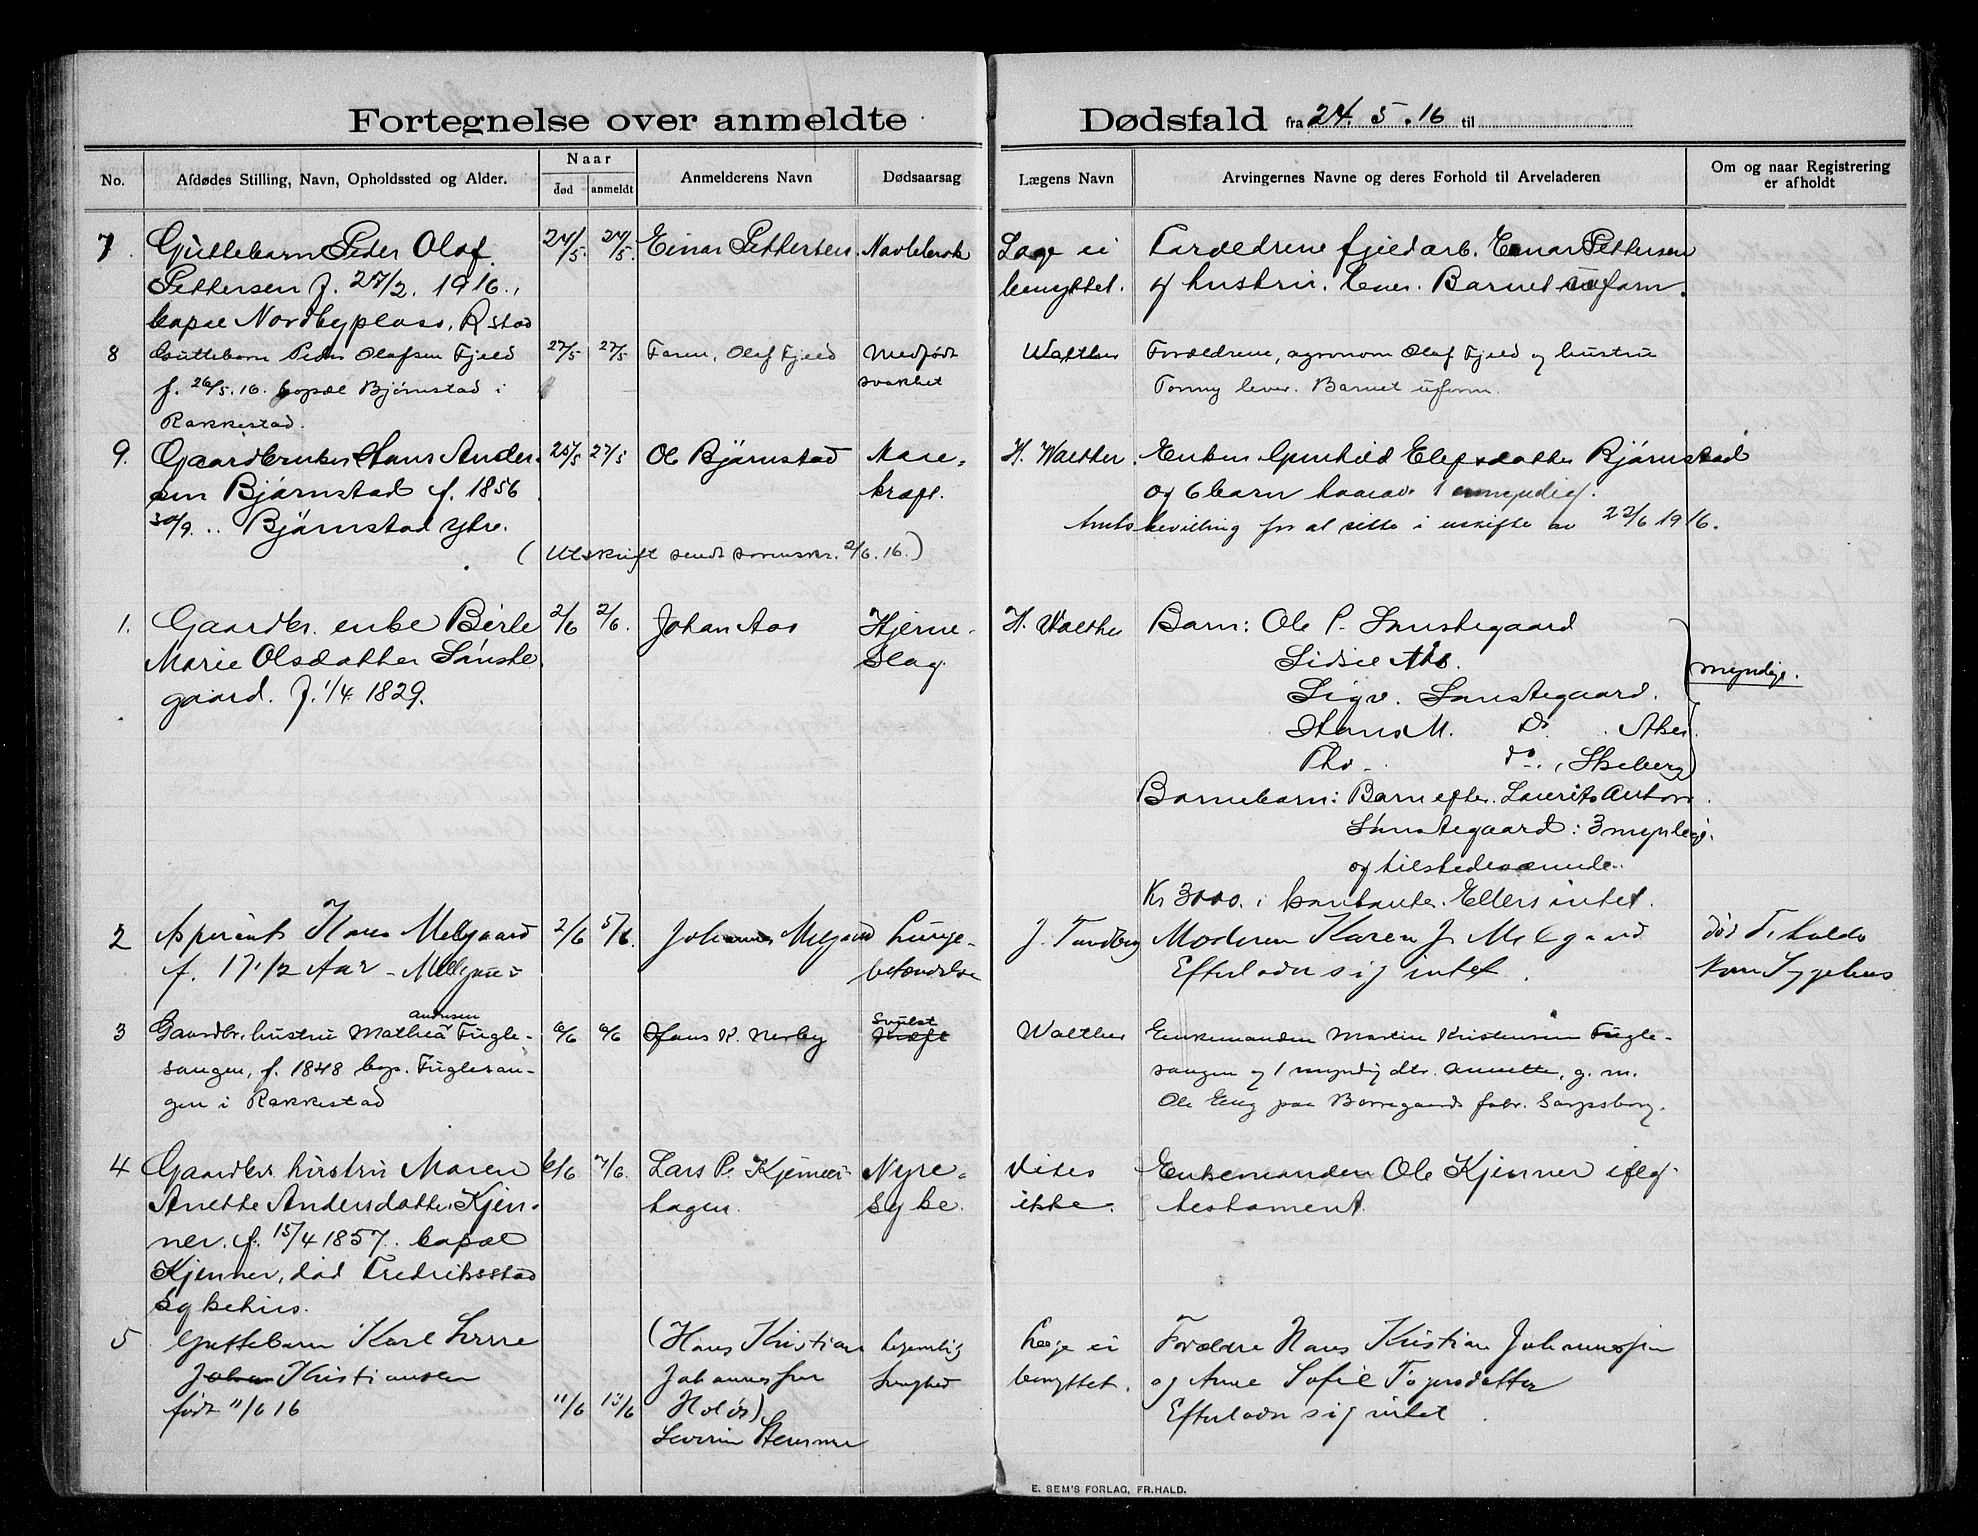 Fortegnelse over anmeldte Dødsfald fra 24. 5. 16 til
No.
Afdødes Stilling, Navn, Opholdssted og Alder.
Naar
død
anmeldt
Anmelderens Navn
Dødsaarsag
Lægens Navn
Arvingernes Navne og deres Forhold til Arveladeren
Om og naar Registrering
er afholdt
7. Guttebarn Peder Olaf 24/5. 24/5. Einar Pettersen Navlebrok Læge ei Forældrene fjeldarb. Einar Pettersen
Pettersen f. 27/2. 1916. benyttet. og hustru lever. Barnet uform.
bopæl Nordbyplass, R.stad
8 Guttebarn Peder Olafsen Fjeld 27/5 27/5 Faren, Olaf Fjeld Medfødt Walther Forældrene, agronom Olaf Fjeld og hustru
f. 26/5.16. bopæl Bjørnstad i svakhet Tonny lever. Barnet uform.
Rakkestad.
9. Gaardbruker Hans Ander- 25/5 27/5 Ole Bjørnstad Mave- H. Walther. Enken Gunhild Elefsdatter Bjørnstad
sen Bjørnstad f. 1856 kræft. og 6 barn hvorav 1 umyndig.
30/9. .. Bjørnstad ytre. Amtsbevilling for at sitte i uskifte av 22/6 1916.
(Utskrift sendt sorenskr. 2/6. 16.)
1. Gaardbr. enke Berte 2/6 2/6. Johan Aas Hjerne- H. Walther Barn: Ole P. Sønstegaard
Marie Olsdatter Sønste slag. Lidsie Aas.
gaard. f. 1/4 1829. Sigv. Sønstegaard. myndige.
Hans M. Do. Aker.
Thv. do., Skeberg
Barnebarn: Barn efter Laurits Anton
Sønstegaard: 3 myndige.
og tilstedeværende.
Kr 3000. i kontanter. Ellers intet.
2 Aspirant Hans Melgaard 2/6 5/6. Johannes Melgaard Lunge- J. Tandberg Moderen Karen J. Melgaard død
f. 17 1/2 Aar - Melgaard betændelse Efterlader sig intet. Sygehus
3 Gaardbr. hustru Mathea Andersen Fugle- 6/6 6/6 Hans K. Nerby Svulst Kræft Walther Enkemanden Martin Kristensen Fugle-
sangen, f. 1848 bop. Fuglesan- sangen og 1 myndig dtr. Annette, g. m.
gen i Rakkestad Ole Eng paa Borregaards fabr. Sarpsborg.
4 Gaardbr. hustru Maren 6/6 7/6. Lars P. Kjenner- Nyre- Vites Enkemanden Ole Kjenner iflg.
Anette Andersdatter Kjen- hagen. syke. ikke. testament.
ner. f. 15/4 1857. bopæl
Kjenner, død Fredriksstad
sykehus.
5 Guttebarn Karl (Hans Kristian Legemlig Læge ei Forældre Hans Kristian Johannessen
Johan Kristiansen Johannessen Svaghed benyttet. og Anne Sofie
født 11/6 16 11/6 13/6 Severin Efterlader sig intet.
E. SEM'S FORLAG, FR.HALD.